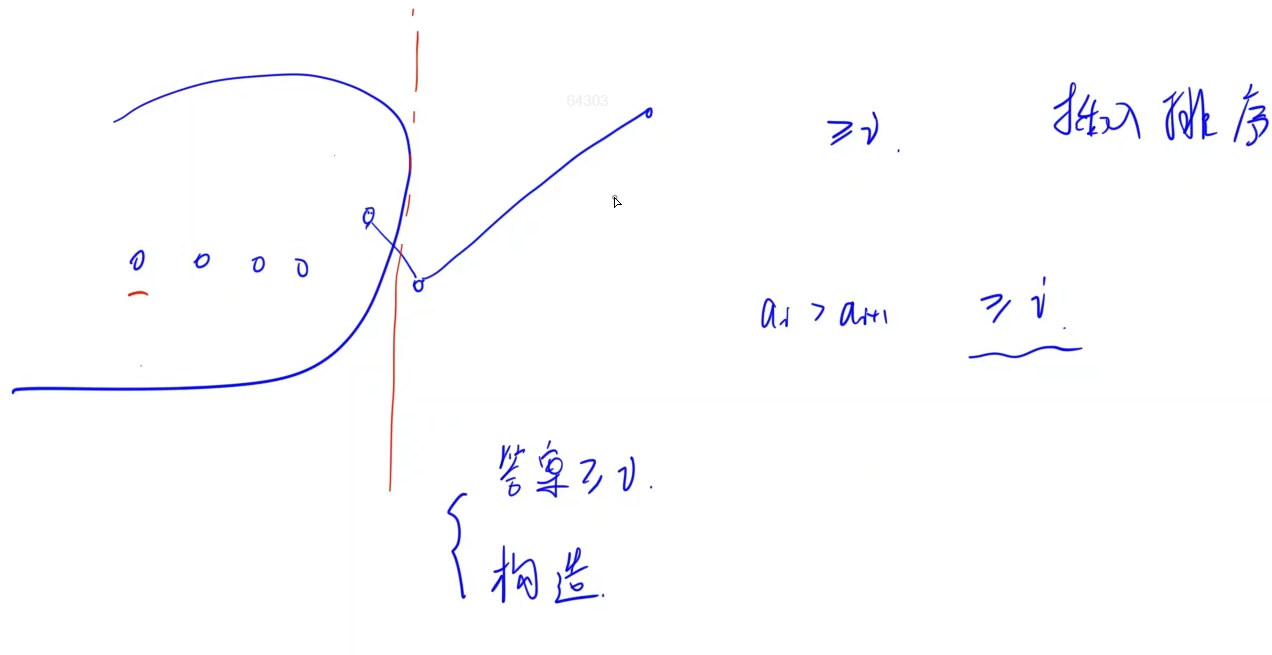 64303
≥i.
插入排序
aᵢ > aᵢ₊₁
≥i.
答案≥i.
构造.